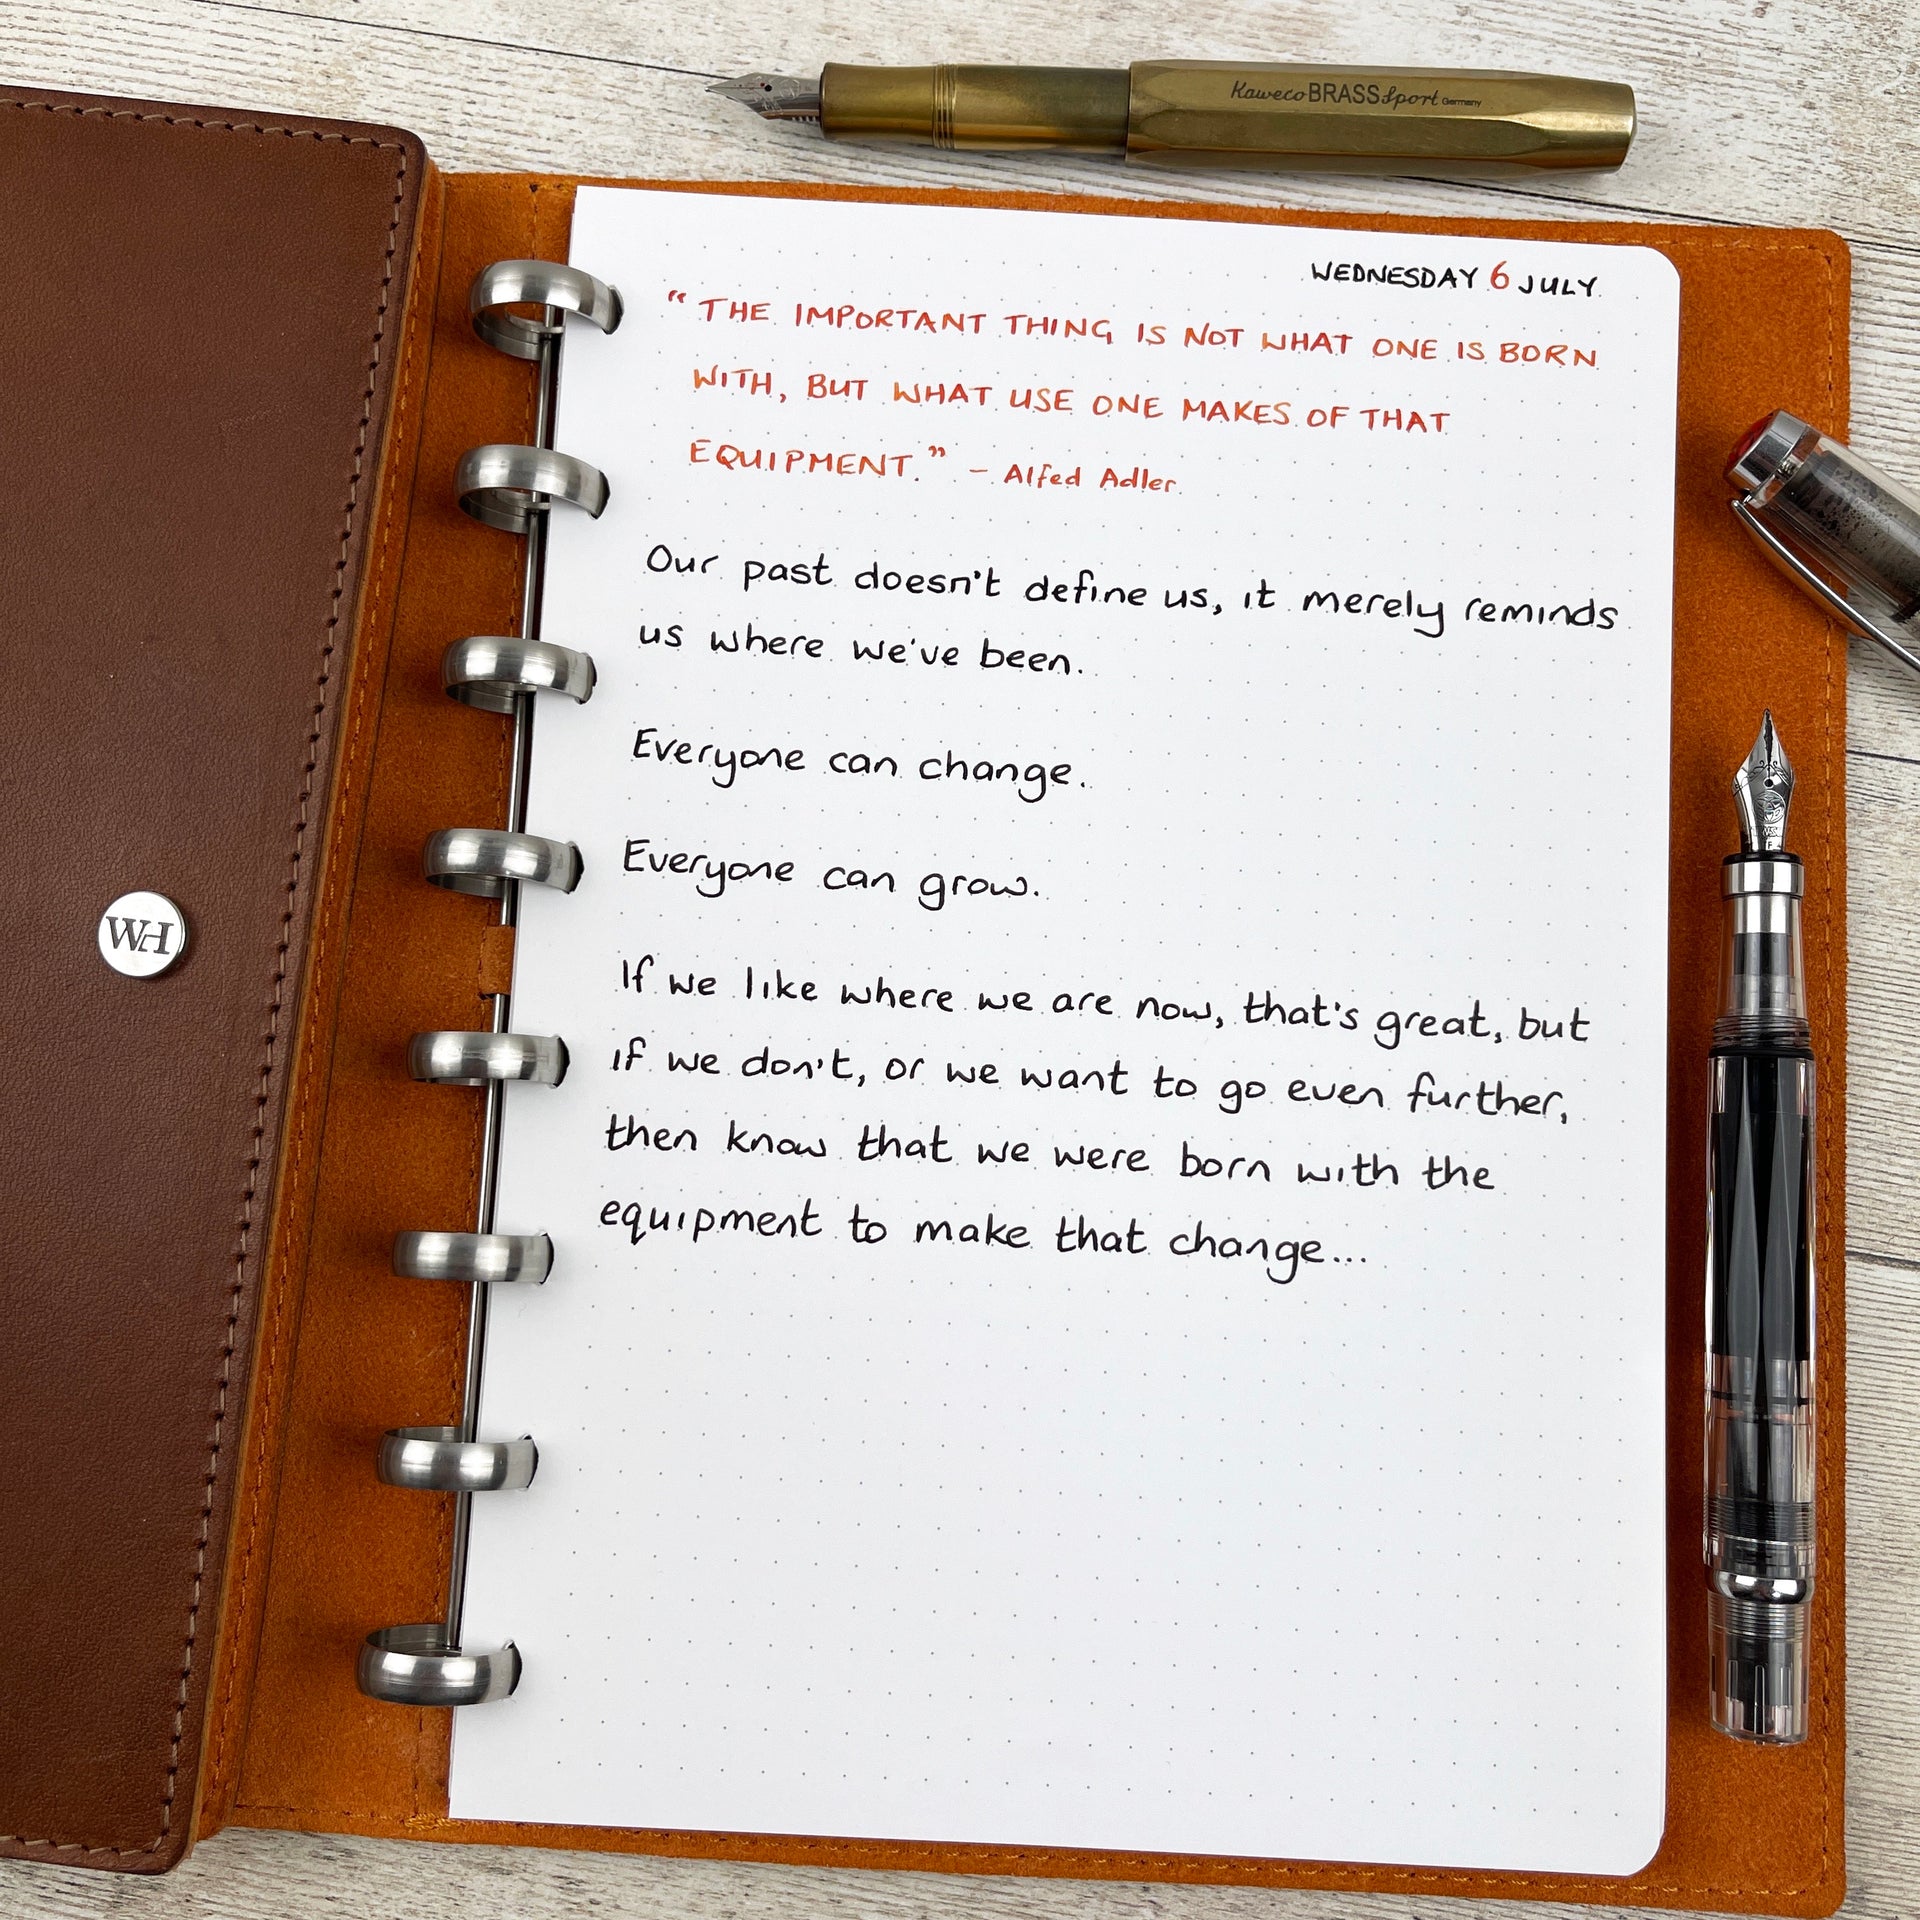 Kaweco BRASS Sport Germany
WEDNESDAY 6 JULY
“THE IMPORTANT THING IS NOT WHAT ONE IS BORN
WITH, BUT WHAT USE ONE MAKES OF THAT
EQUIPMENT.” – Alfed Adler
Our past doesn't define us, it merely reminds
us where we've been.
Everyone can change.
Everyone can grow.
If we like where we are now, that's great, but
if we don't, or we want to go even further,
then know that we were born with the
equipment to make that change...
WH
F